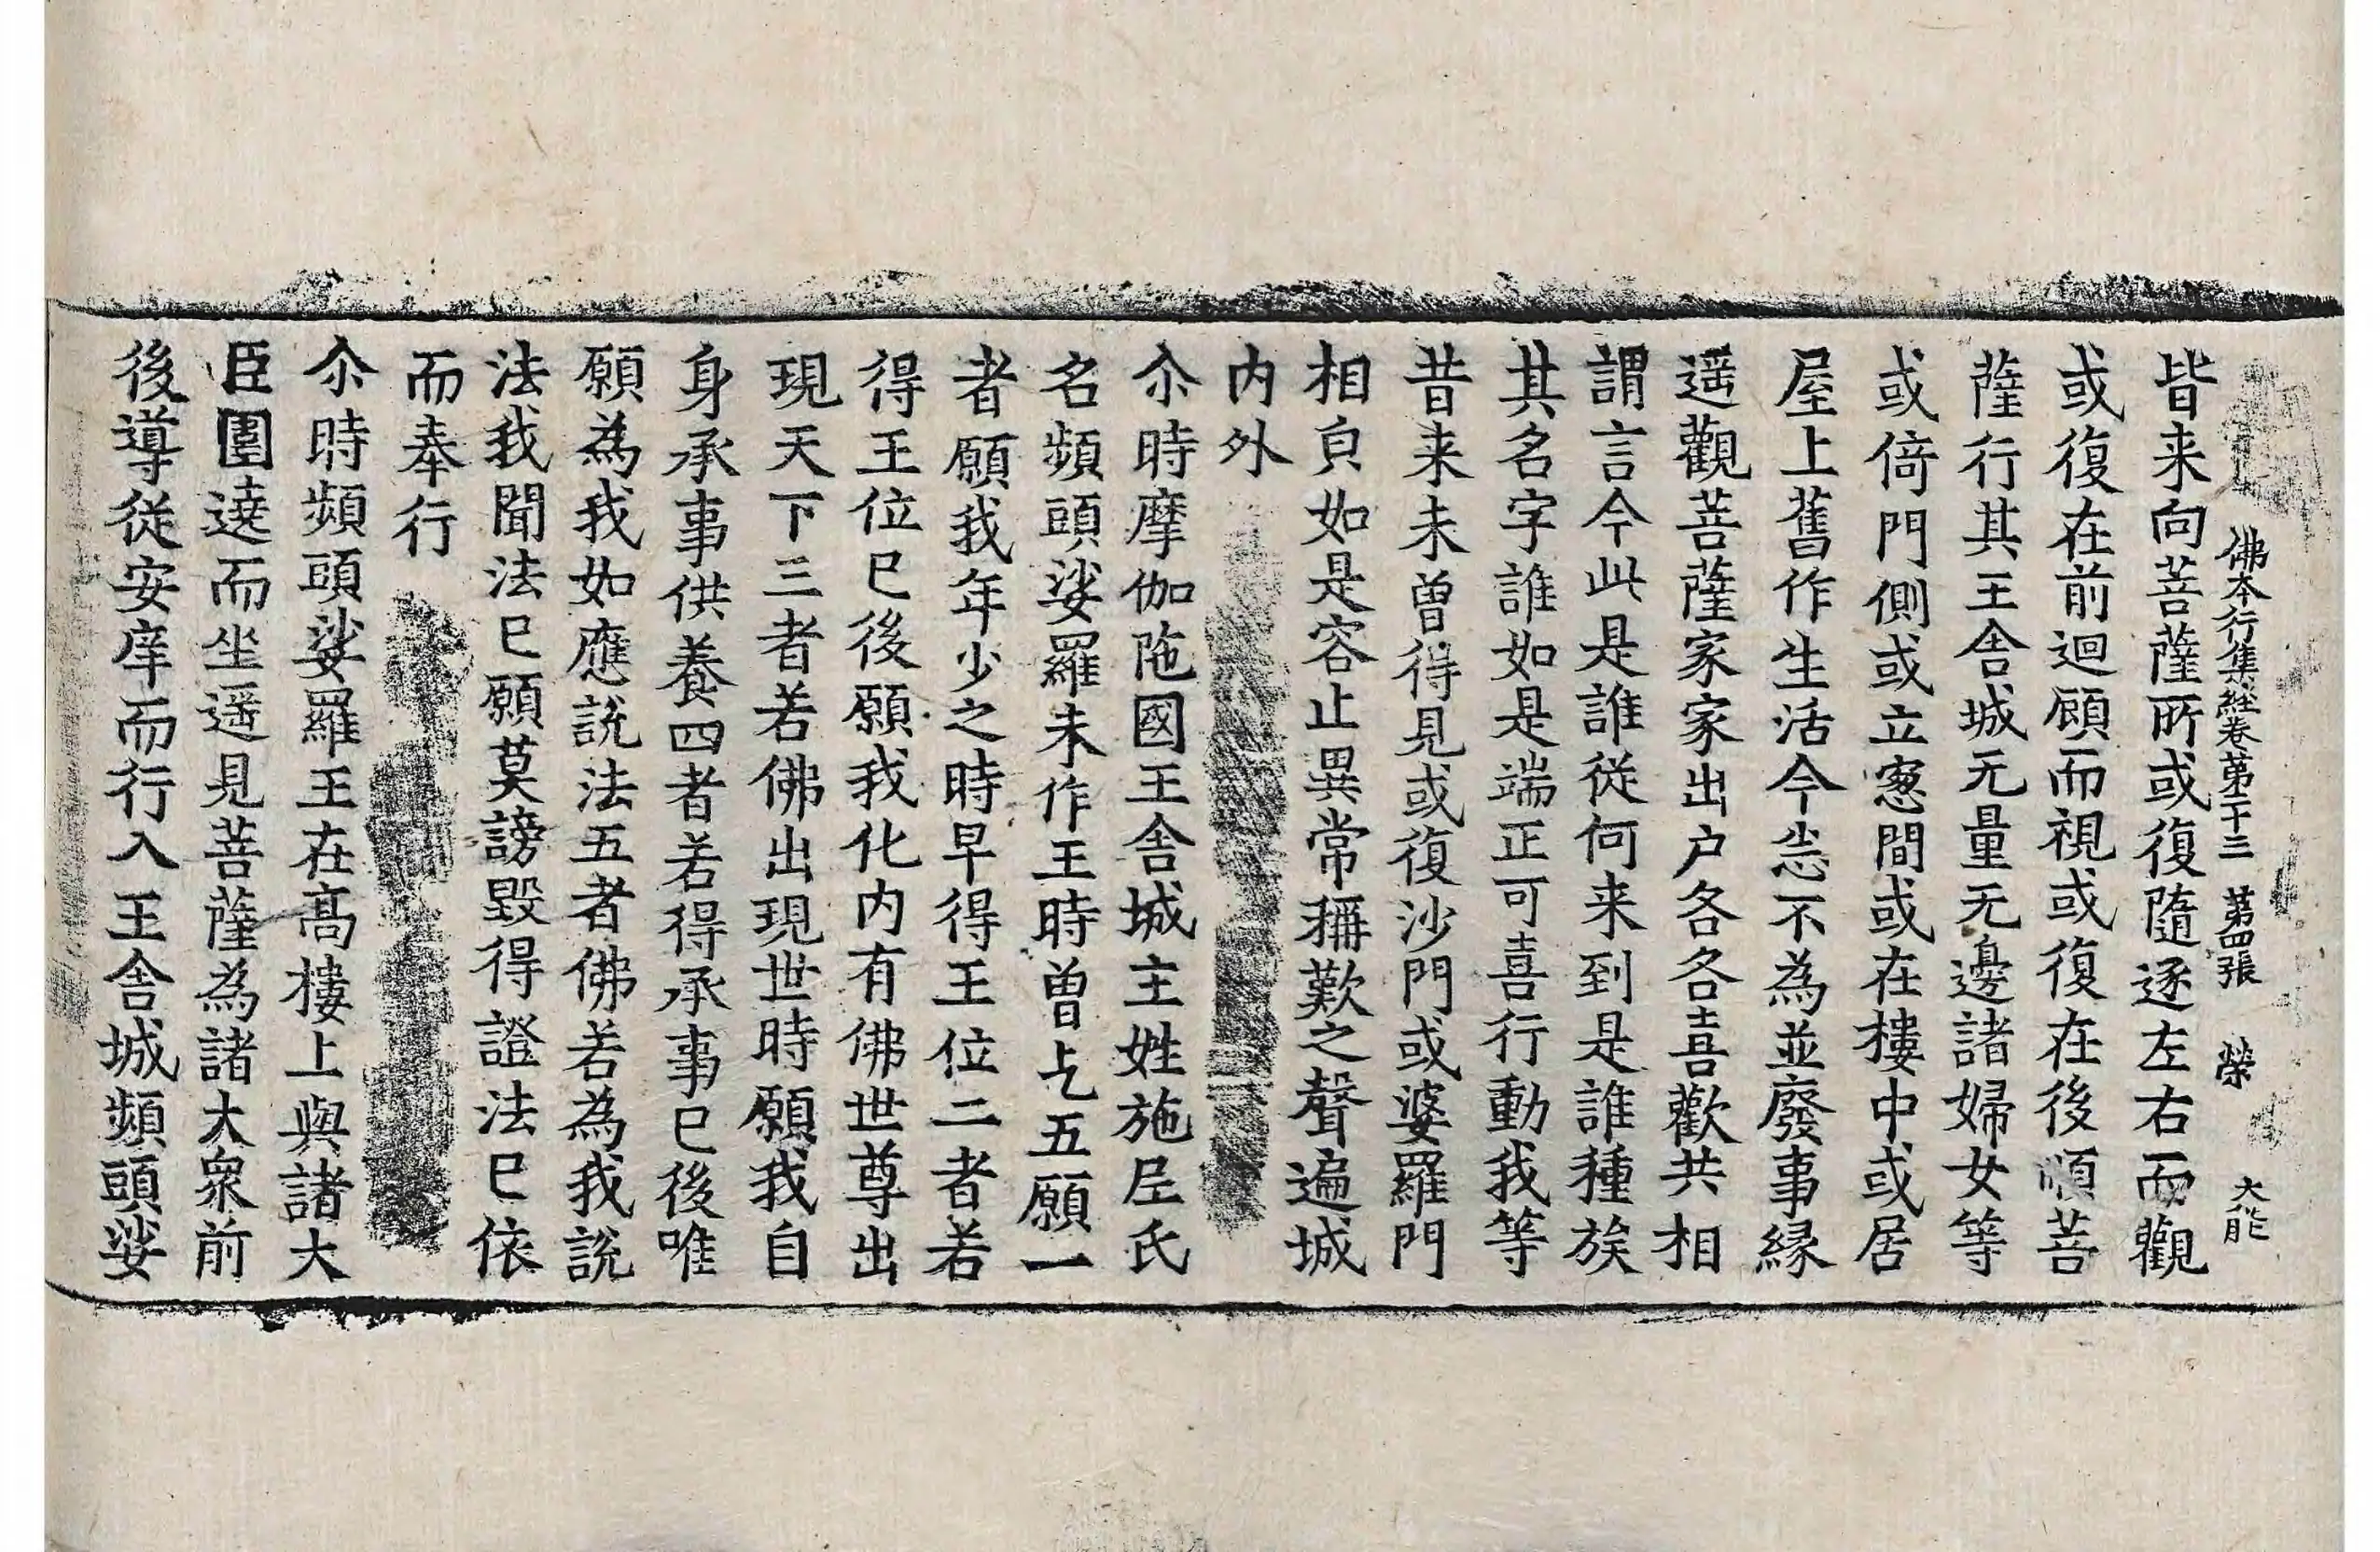 佛本行集経卷第二十三 第四張 榮 大能
皆来向菩薩所或復隨逐左右而觀
或復在前迴顧而視或復在後順菩
薩行其王舎城无量无邊諸婦女等
或倚門側或立窓間或在樓中或居
屋上舊作生活今𢗅不為並廢事縁
遥觀菩薩家家出户各各喜歡共相
謂言今此是誰從何来到是誰種族
其名字誰如是端正可喜行動我等
昔来未曽得見或復沙門或婆羅門
相皃如是容止異常稱歎之聲遍城
内外
尒時摩伽陁國王舎城主姓施𡰱氏
名頻頭娑羅未作王時曽乞五願一
者願我年少之時早得王位二者若
得王位已後願我化内有佛世尊出
現天下三者若佛出現世時願我自
身承事供養四者若得承事已後唯
願為我如應說法五者佛若為我說
法我聞法已願莫謗毀得證法已依
而奉行
尒時頻頭娑羅王在髙樓上與諸大
臣圍遶而坐遥見菩薩為諸大衆前
後導從安庠而行入王舎城頻頭娑